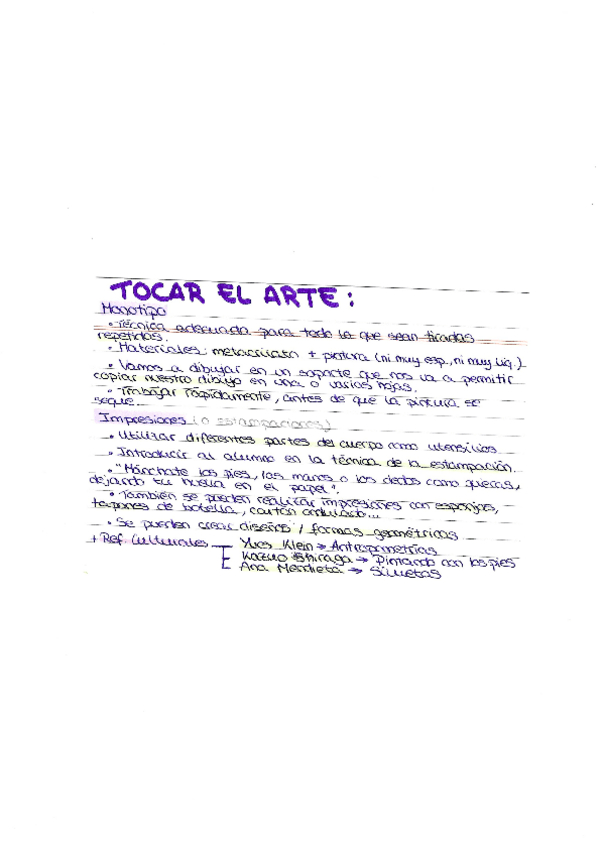 TOCAR EL ARTE:
Monotipo
• Técnica adecuada para todo lo que sean tiradas
repetidas.
• Materiales: metacrilato + pintura (ni muy esp., ni muy líq.)
• Vamos a dibujar en un soporte que nos va a permitir
copiar nuestro dibujo en una o varias hojas.
• Trabajar rápidamente, antes de que la pintura se
seque...
Impresiones (o estampaciones)
• Utilizar diferentes partes del cuerpo como utensilios.
• Introducir al alumno en la técnica de la estampación.
• "Mánchate los pies, las manos o los dedos como quieras,
dejando tu huella en el papel".
• También se pueden realizar impresiones con esponjas,
tapones de botella, cartón ondulado...
• Se pueden crear diseños / formas geométricas
+ Ref. Culturales
Yves Klein → Antropometrías
Kazuo Shiraga → Pintando con los pies
Ana Mendieta → Siluetas